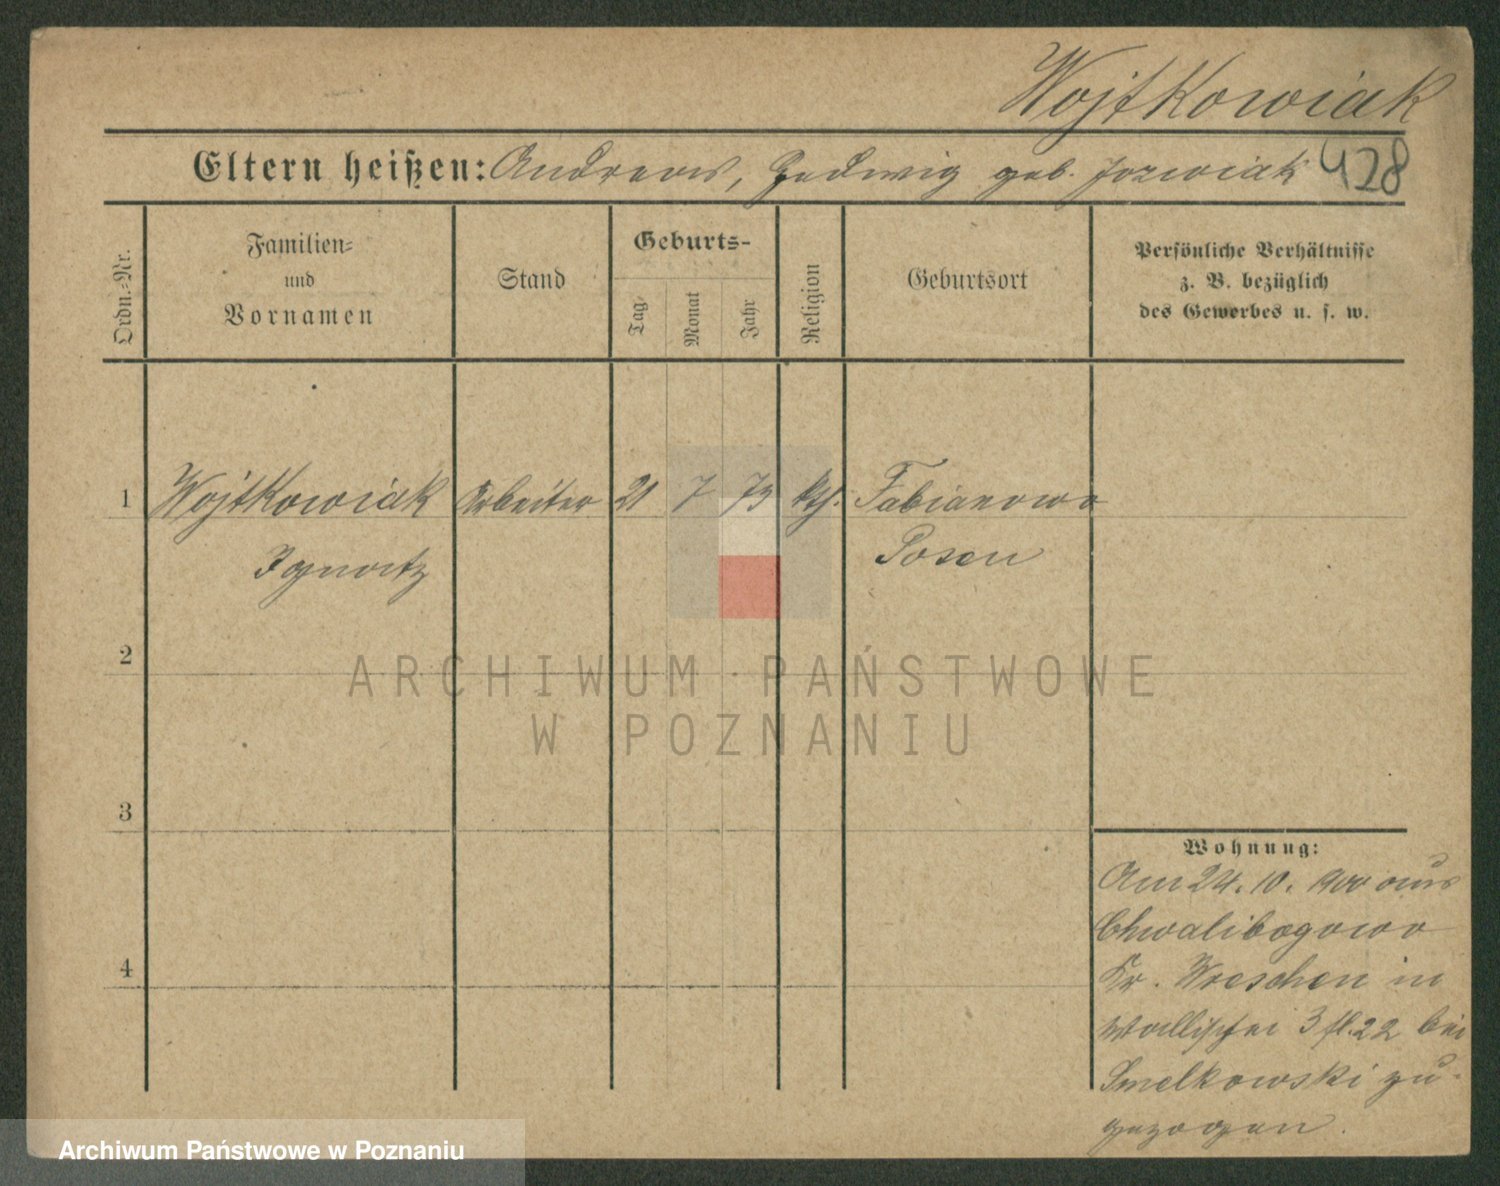 Wojtkowiak
428
Eltern heißen: Andreas, Hedwig geb. Jozwiak
Ordn.-Nr.
Familien-
und
Vornamen
Stand
Geburts-
Tag
Monat
Jahr
Religion
Geburtsort
Persönliche Verhältnisse
z. B. bezüglich
des Gewerbes u. s. w.
1 Wojtkowiak Arbeiter 21 7 73 kth. Fabianowo
Ignatz Posen
2
3
4
ARCHIWUM PAŃSTWOWE
W POZNANIU
Wohnung:
Am 24. 10. 900 aus
Chwalibogowo
Kr. Wreschen in
Wallischei 3 fl. 22 bei
Smelkowski zu-
gezogen.
Archiwum Państwowe w Poznaniu